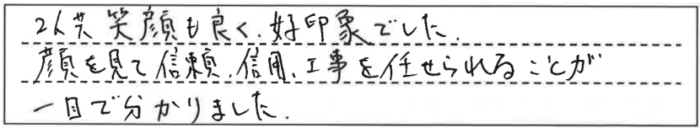 2人共笑顔も良く、好印象でした。
顔を見て信頼、信用、工事を任せられることが
一目で分かりました。